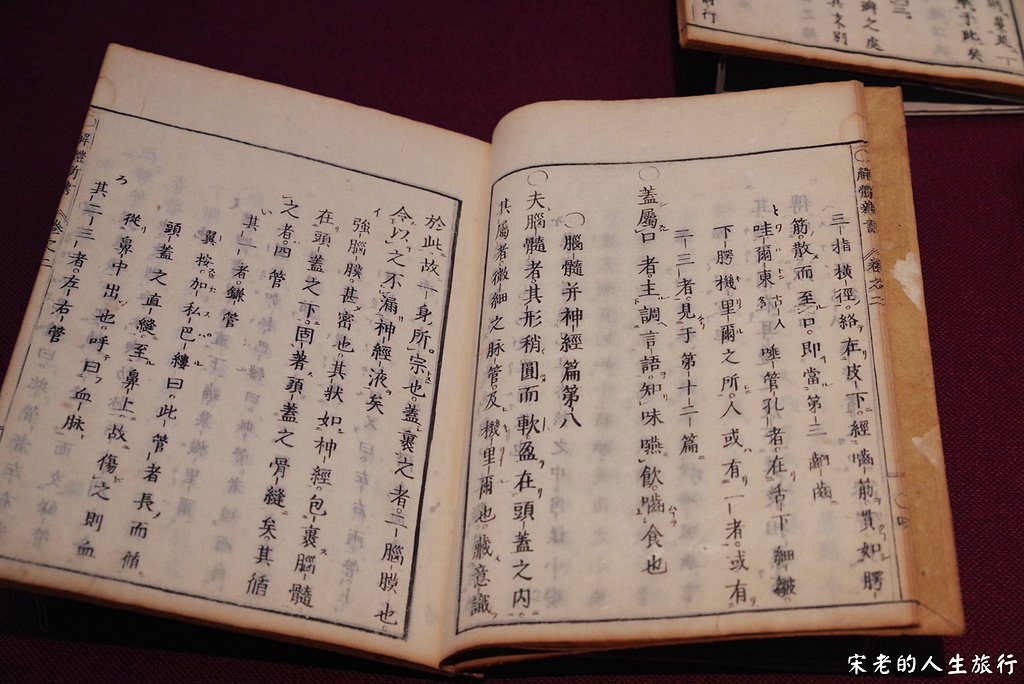 解體新書 卷之二
三指橫徑絡在皮下經嚙筋貫如腭
筋散而至口即當第三齶齒
哇爾東人唾管孔者在舌下細皺
下腭機里爾之所人或有一者或有
二三者見于第十二篇
○蓋屬口者主調言語知味嚥飲嚙食也
○腦髓并神經篇第八
○夫腦髓者其形稍圓而軟盈在頭蓋之內
其屬者微細之脉管及機里爾也藏意識
於此故一身所宗也蓋裹之者二腦膜也
令以之不漏神經液矣
強腦膜甚密也其狀如神經包裹腦髓
在頭蓋之下固著頭蓋之骨縫矣其循
之者四管
い 其一者鎌管
翼按加私巴縷曰此管者長而循
頭蓋之直縫至鼻上故傷之則血
從鼻中出也呼曰血脉
ろ 其二三者左右管
解體新書 卷之二
宋老的人生旅行